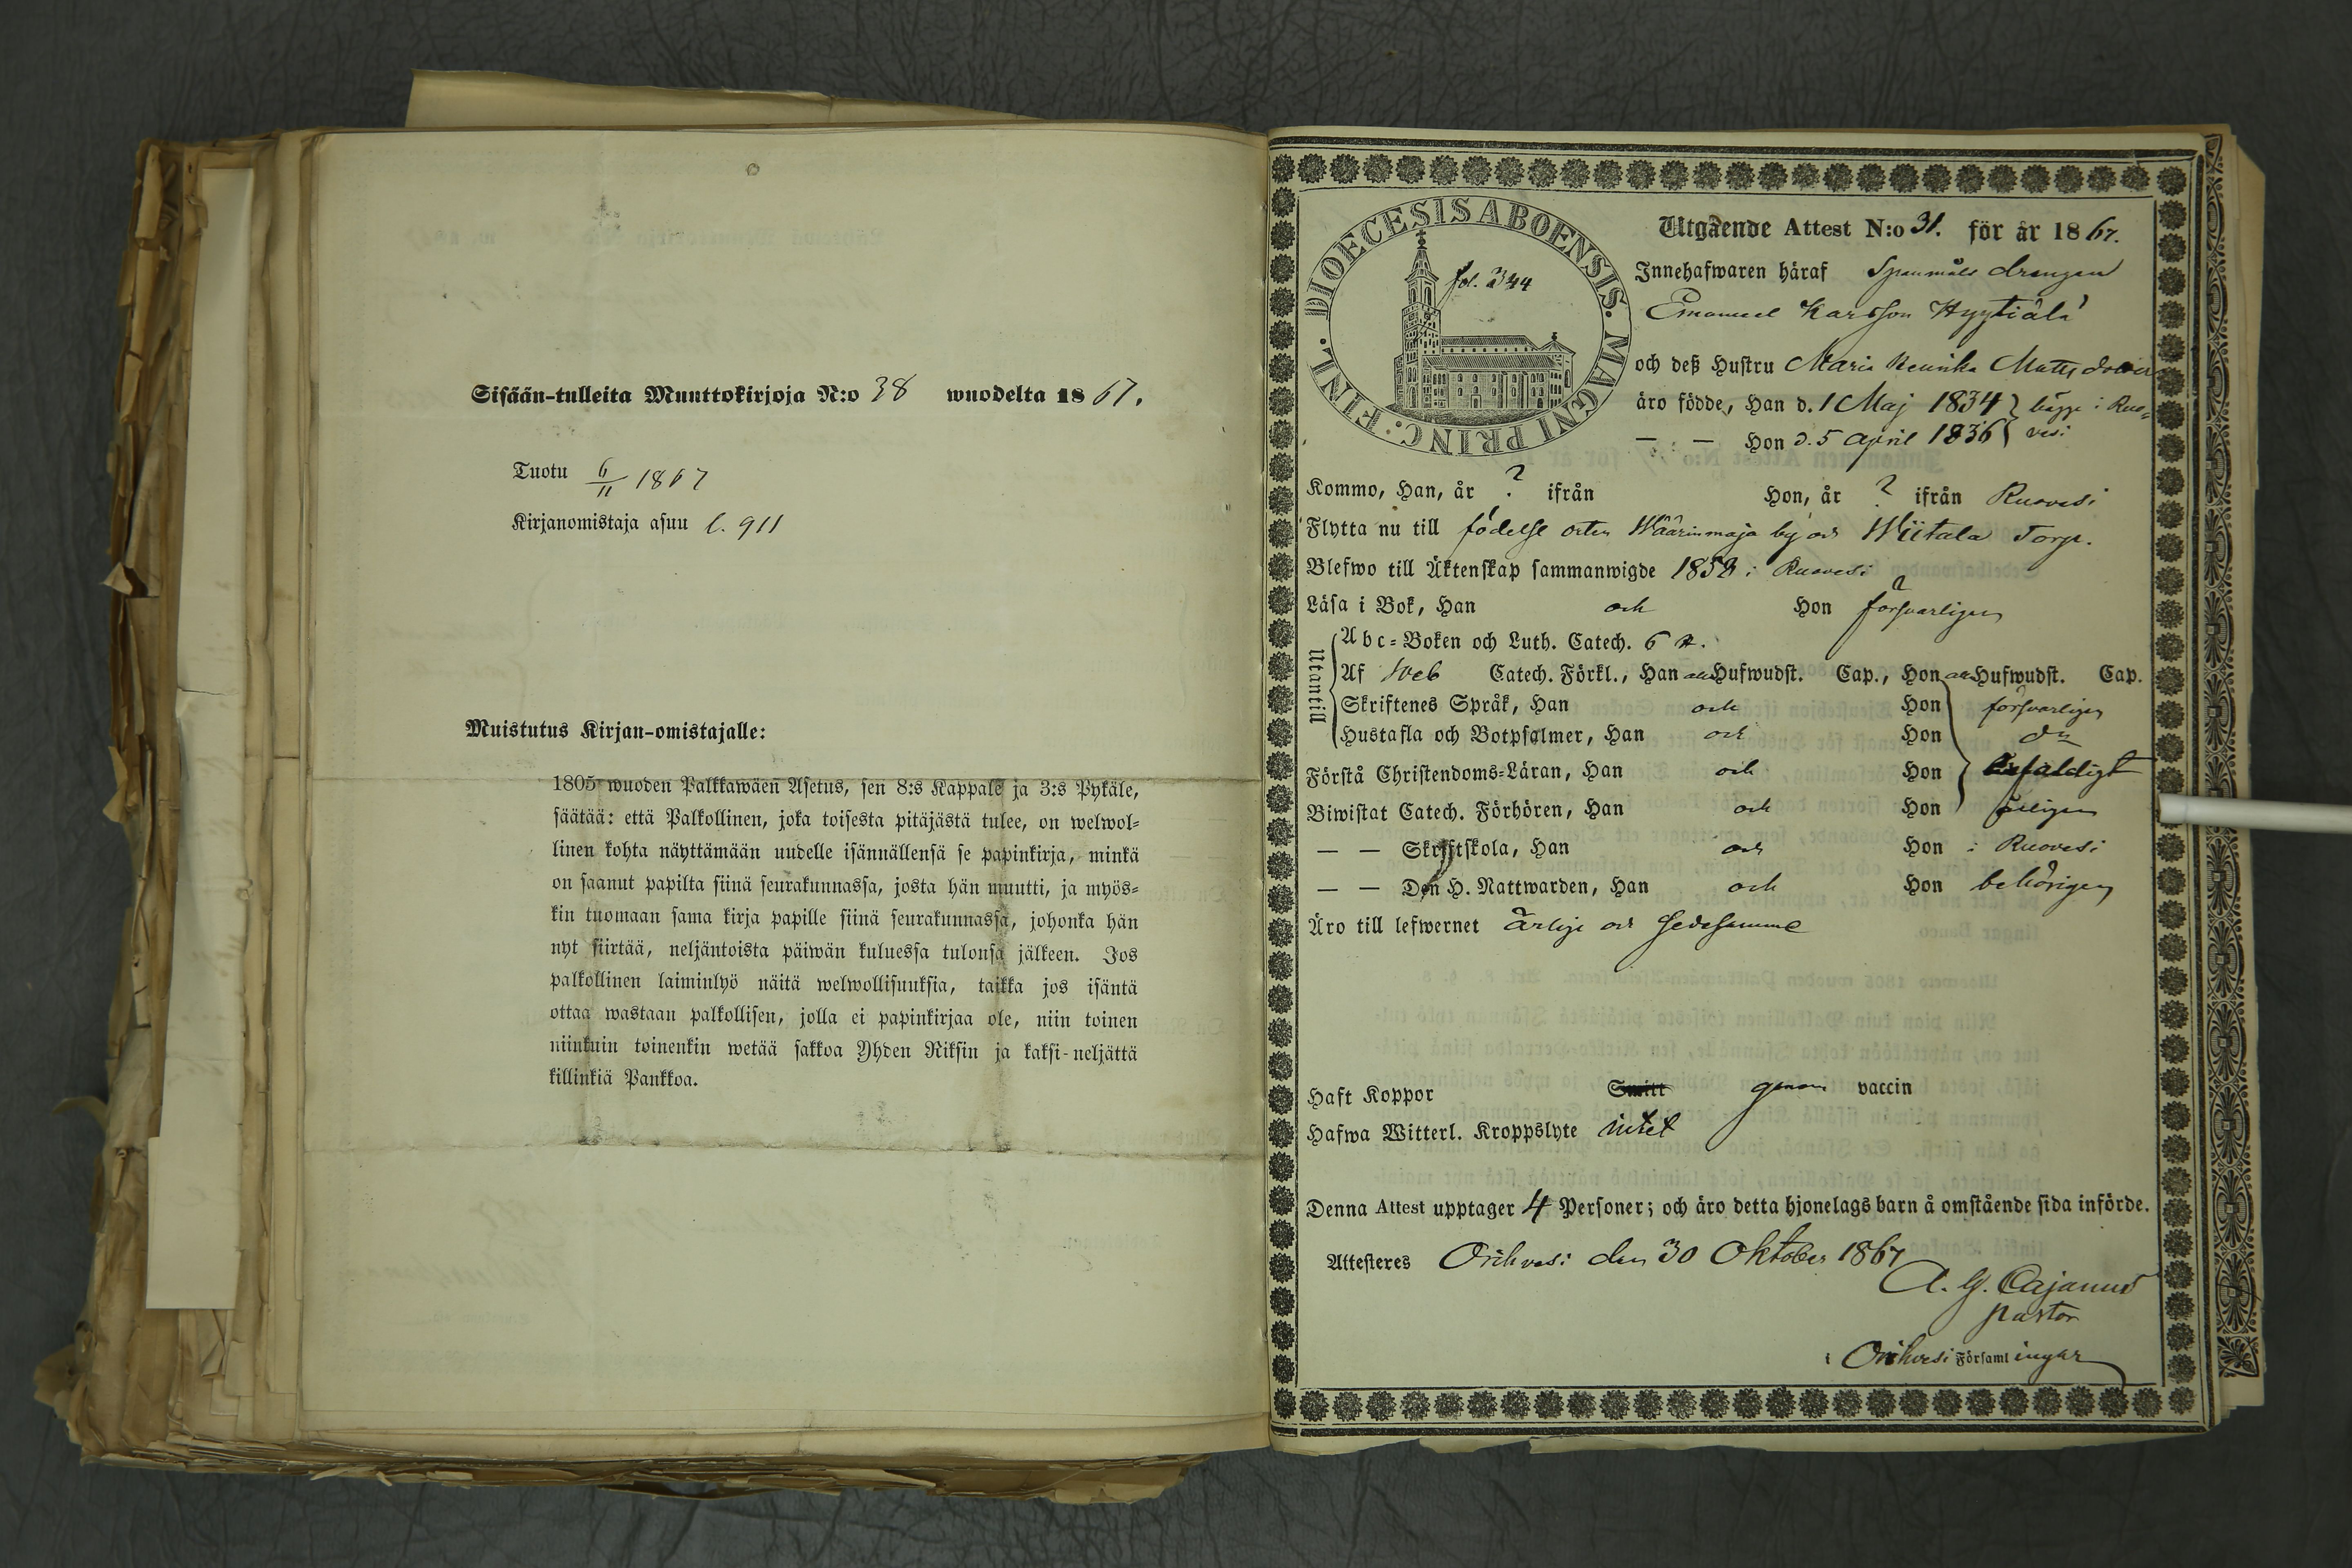 Sisään-tulleita Muuttokirjoja N:o 38 wuodelta 1867.
Tuotu 6/11 1867
Kirjanomistaja asuu l. 911
Muistutus Kirjan-omistajalle:
1805 wuoden Palkkawäen Asetus, sen 8:s Kappale ja 3:s Pykäle,
säätää: että Palkollinen, joka toisesta pitäjästä tulee, on welwol=
linen kohta näyttämään uudelle isännällensä se papinkirja, minkä
on saanut papilta siinä seurakunnassa, josta hän muutti, ja myös=
kin tuomaan sama kirja papille siinä seurakunnassa, johonka hän
nyt siirtää, neljäntoista päiwän kuluessa tulonsa jälkeen. Jos
palkollinen laiminlyö näitä welwollisuuksia, taikka jos isäntä
ottaa wastaan palkollisen, jolla ei papinkirjaa ole, niin toinen
niinkuin toinenkin wetää sakkoa Yhden Riksin ja kaksi-neljättä
killinkiä Pankkoa.
DIOECESIS ABOENSIS. MAGNI PRINC: FINL.
fol. 344
Utgående Attest N:o 31. för år 1867.
Innehafwaren häraf Spanmåls drengen
Emanuel Karlsson Hyytiälä
och deß Hustru Maria Mattsdotter
äro födde, Han d. 1 Maj 1834 } bägge i Ruo=
— — Hon d. 5 April 1836 } vesi
Kommo, Han, år ? ifrån Hon, år ? ifrån Ruovesi
Flytta nu till födelse orten Wäärinmaja by och Wiitala Torp.
Blefwo till Äktenskap sammanwigde 1858 i Ruovesi
Läsa i Bok, Han och Hon försvarligen
Utantill
Abc=Boken och Luth. Catech. 6 st.
Af Sveb Catech. Förkl., Han all Hufwudst. Cap., Hon all Hufwudst. Cap.
Skriftenes Språk, Han och Hon försvarligen
Hustafla och Botpsalmer, Han och Hon do
Förstå Christendoms=Läran, Han och Hon enfaldigt
Biwistat Catech. Förhören, Han och Hon årligen
— — Skriftskola, Han och Hon i Ruovesi
— — Den H. Nattwarden, Han och Hon behörigen
Äro till lefwernet ärlige och sedesamme
Haft Koppor Smitt genom vaccin
Hafwa Witterl. Kroppslyte intet
Denna Attest upptager 4 Personer; och äro detta hjonelags barn å omstående sida införde.
Attesteres Orihvesi den 30 Oktober 1867
A. G. Cajanus
pastor
i Orihvesi Församlingar